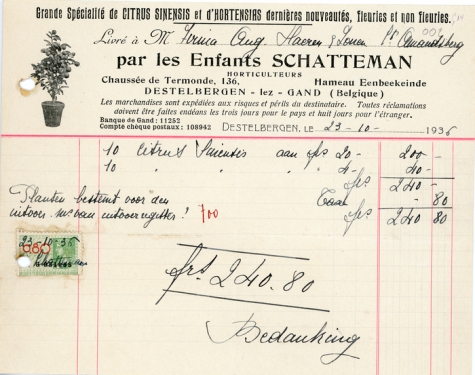 Grande Spécialité de CITRUS SINENSIS et d'HORTENSIAS dernières nouveautés, fleuries et non fleuries.
Livré à M Firma Aug. Haerens & Zonen St Amandsberg
par les Enfants SCHATTEMAN
HORTICULTEURS
Chaussée de Termonde, 136, Hameau Eenbeekeinde
DESTELBERGEN - lez - GAND (Belgique)
Les marchandises sont expédiées aux risques et périls du destinataire. Toutes réclamations
doivent être faites endéans les trois jours pour le pays et huit jours pour l'étranger.
Banque de Gand: 11252
Compte chèque postaux: 108942 DESTELBERGEN, le 23-10- 1936
10 Citrus Sinensis aan frs 20- 200-
10 " " " " 4- 40-
frs 240-
Planten bestemt voor den Taxe - 80
invoer frs 240 80
700
23-10-36
0,80
frs 240.80
Bedanking